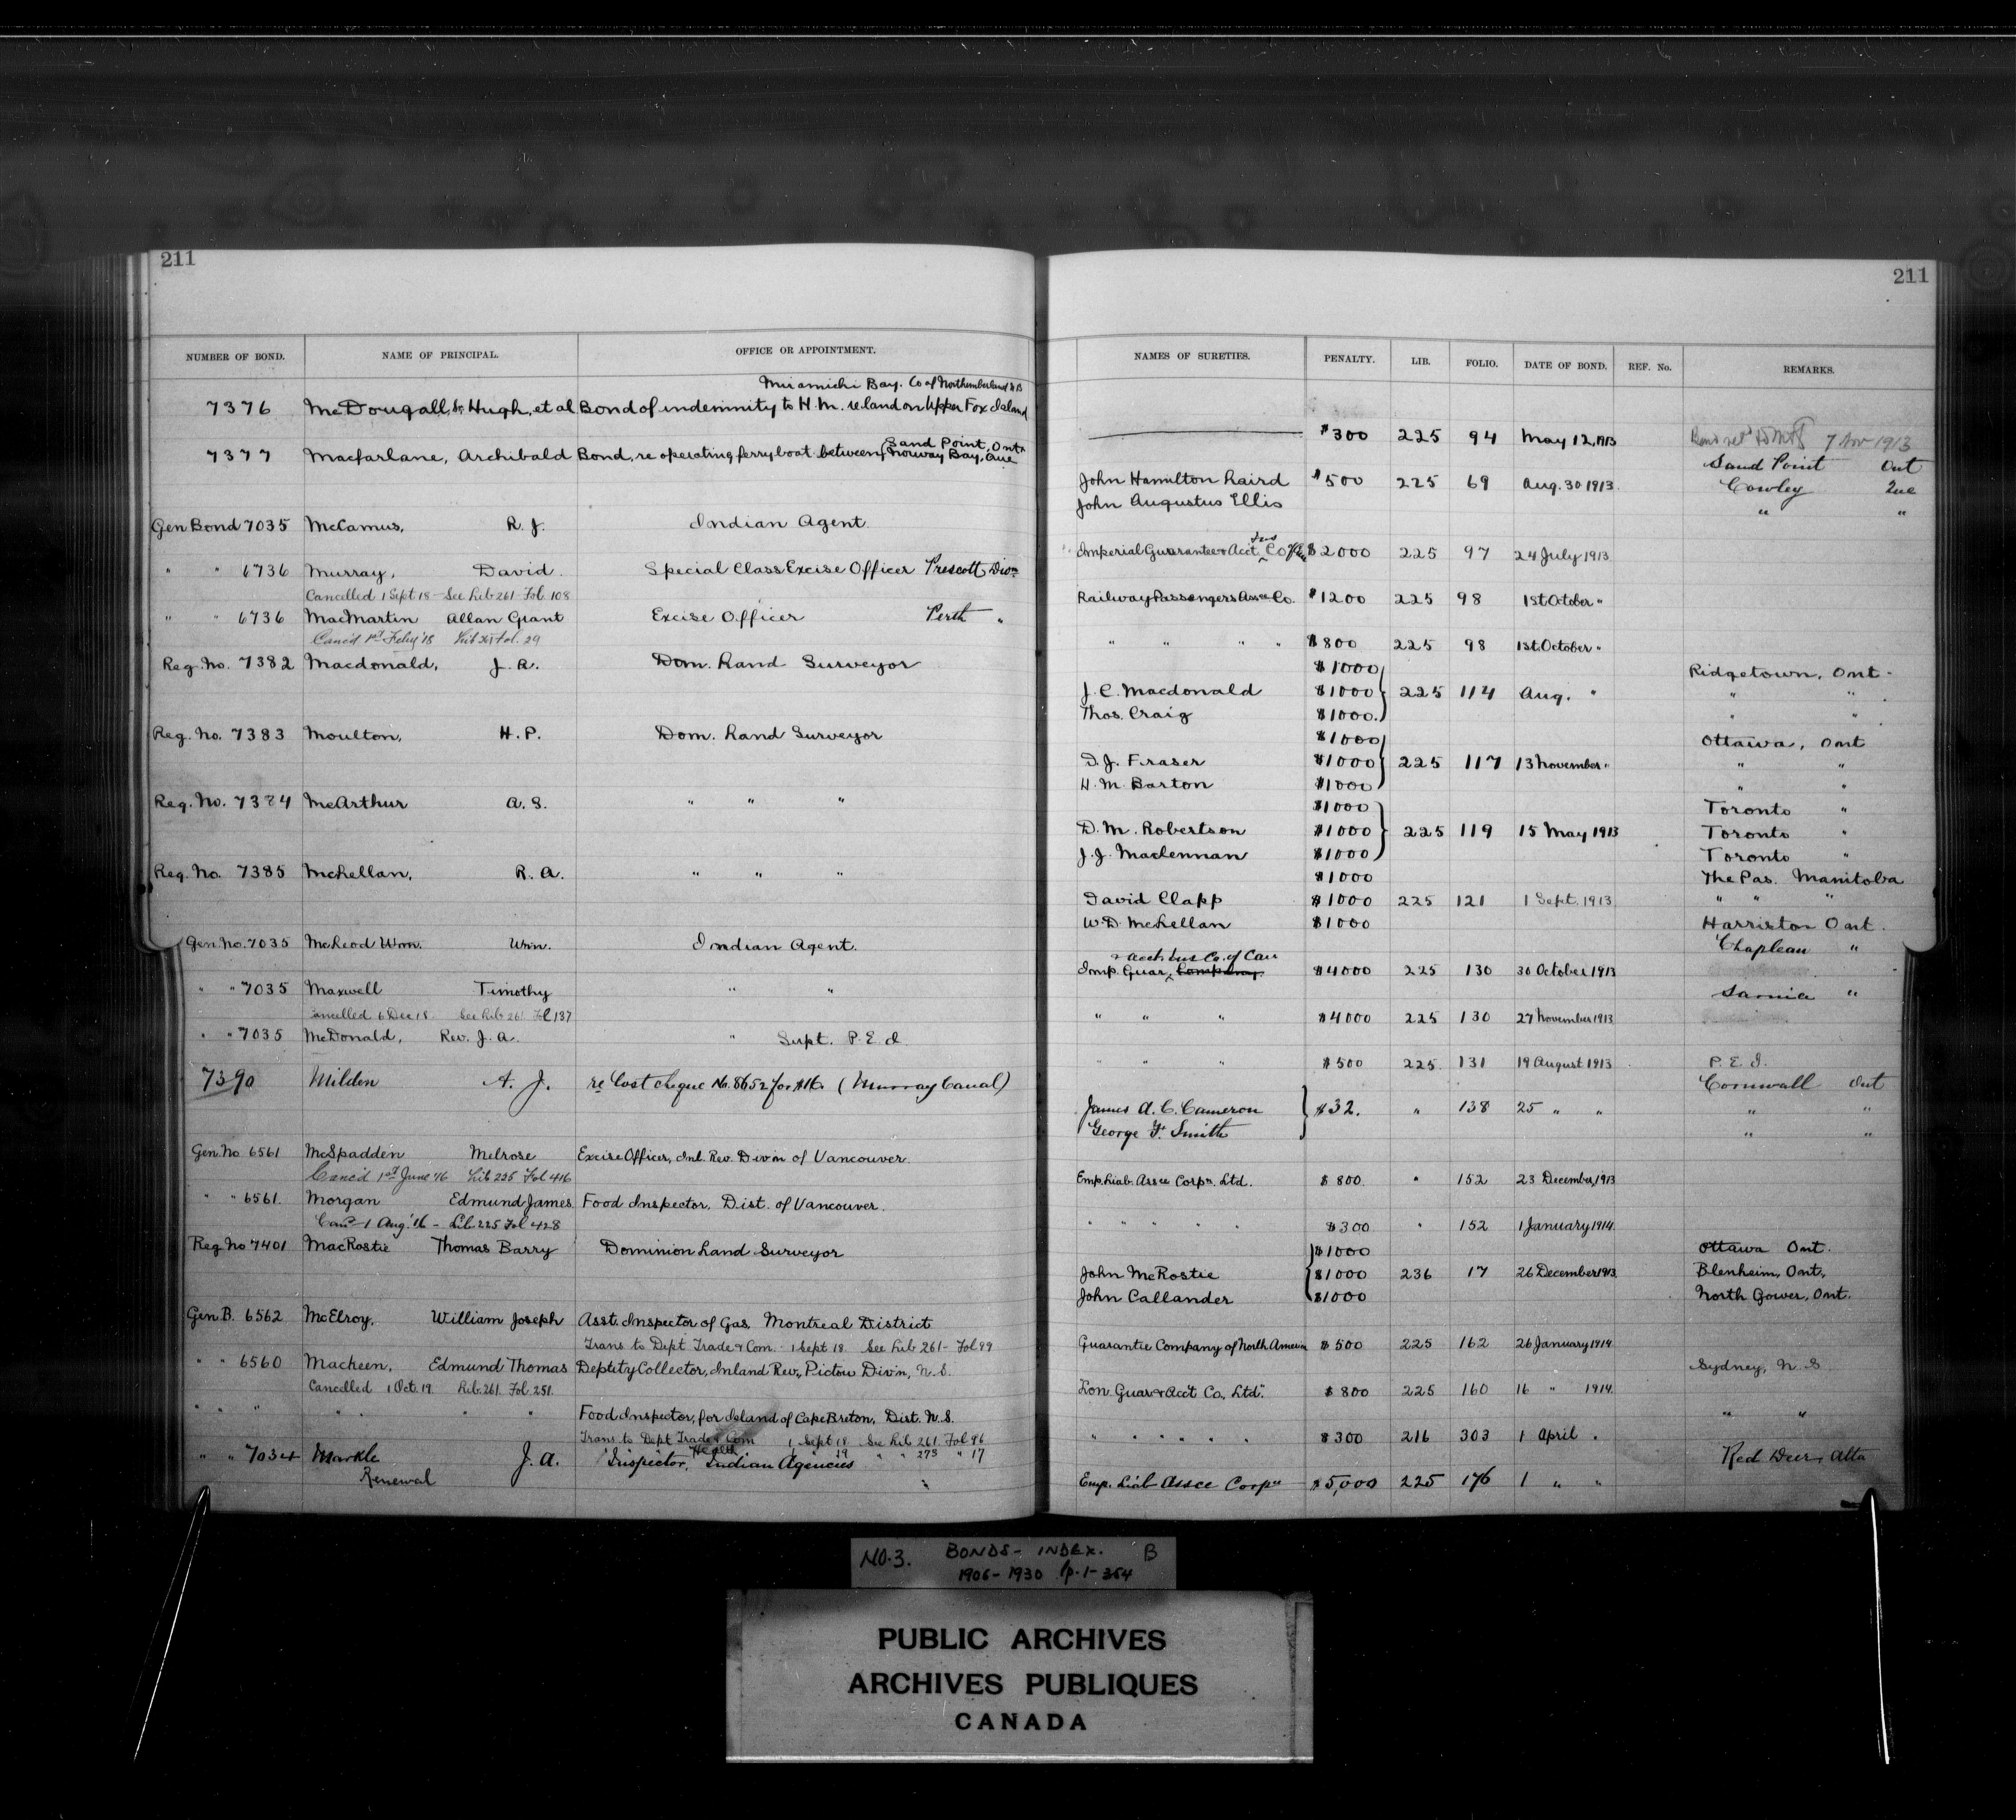 211
NUMBER OF BOND. NAME OF PRINCIPAL. OFFICE OR APPOINTMENT.
Miramichi Bay. Co of Northumberland N B
7376 McDougall, Sr Hugh, et al Bond of indemnity to H.M. re land on Upper Fox Island
7377 Macfarlane, Archibald Bond, re operating ferry boat between Sand Point, Ont
Norway Bay, Que
Gen Bond 7035 McCamus, R. J. Indian Agent
" " 6736 Murray, David. Special Class Excise Officer Prescott Divn
Cancelled 1 Sept 18 - See Lib 261 Fol. 108
" " 6736 MacMartin Allan Grant Excise Officer Perth "
Canc'd 1st Feby '18 Lib 261 Fol. 29
Reg. No. 7382 Macdonald, J. A. Dom. Land Surveyor
Reg. No. 7383 Moulton, H. P. Dom. Land Surveyor
Reg. No. 7384 McArthur A. S. " " "
Reg. No. 7385 McLellan, R. A. " " "
Gen. No. 7035 McLeod Wm. Wm. Indian Agent.
" " 7035 Maxwell Timothy " "
Cancelled 6 Dec 18. See Lib 261 Fol 137
" " 7035 McDonald, Rev. J. A. " Supt. P. E. I.
7390 Milden A. J. re Lost cheque No. 8652 for $16 (Murray Canal)
Gen. No 6561 McSpadden Melrose Excise Officer, Inl. Rev. Divn of Vancouver.
Canc'd 1st June '16 Lib 225 Fol 416
" " 6561. Morgan Edmund James Food Inspector, Dist. of Vancouver.
Canc 1 Aug. '16 - Lib. 225 Fol 428
Reg No 7401 MacRostie Thomas Barry Dominion Land Surveyor
Gen. B. 6562 McElroy, William Joseph Asst. Inspector of Gas, Montreal District
Trans to Dept Trade & Com. 1 Sept 18 See Lib 261 - Fol 99
" " 6560 Macheen, Edmund Thomas Deptity Collector, Inland Rev., Pictou Divn, N. S.
Cancelled 1 Oct. 19. Lib. 261. Fol. 251.
" " " " " Food Inspector, for Island of Cape Breton, Dist. N. S.
Trans to Dept Trade & Com 1 Sept 18 See Lib 261 Fol 96
Health 1 " 19 " " 273 " 17
" " 7034 Markle J. A. Inspector, Indian Agencies
Renewal "
211
NAMES OF SURETIES. PENALTY. LIB. FOLIO. DATE OF BOND. REF. No. REMARKS.
$300 225 94 May 12, 1913 7 Nov 1913
Sand Point Ont
John Hamilton Laird $500 225 69 Aug. 30 1913. Cowley Que
John Augustus Ellis " "
Ins
Imperial Guarantee & Acct. Co $2000 225 97 24 July 1913
Railway Passengers Assce Co. $1200 225 98 1st October "
" " " " $800 225 98 1st October "
$1000 Ridgetown, Ont.
J. C. Macdonald $1000 225 114 Aug. " " "
Thos. Craig $1000. " "
$1000 Ottawa, Ont
D. J. Fraser $1000 225 117 13 November " " "
H. M. Barton $1000 " "
$1000 Toronto "
D. M. Robertson $1000 225 119 15 May 1913 Toronto "
J. J. Maclennan $1000 Toronto "
$1000 The Pas. Manitoba
David Clapp $1000 225 121 1 Sept. 1913 " " "
W. D. McLellan $1000 Harriston Ont.
Chapleau "
& Acct. Ins Co. of Can
Imp. Guar. Company. $4000 225 130 30 October 1913
Sarnia "
" " " $4000 225 130 27 November 1913
" " " $500 225 131 19 August 1913 P. E. I.
Cornwall Ont
James A. C. Cameron $32. " 138 25 " " " "
George F. Smith " "
Emp. Liab. Assce Corpn. Ltd. $800. " 152 23 December, 1913
" " " " " $300 " 152 1 January 1914.
$1000 Ottawa Ont.
John McRostie $1000 236 17 26 December 1913 Blenheim, Ont.,
John Callander $1000 North Gower, Ont.
Guarantie Company of North America $500 225 162 26 January 1914
Sydney, N. S.
Lon. Guar & Acc't Co., Ltd. $800 225 160 16 " 1914.
" "
" " " " " " $300 216 303 1 April "
Red Deer, Alta
Emp. Liab Assce Corpn $5,000 225 176 1 " "
NO. 3. BONDS - INDEX. B
1906 - 1930 p. 1 - 354
PUBLIC ARCHIVES
ARCHIVES PUBLIQUES
CANADA